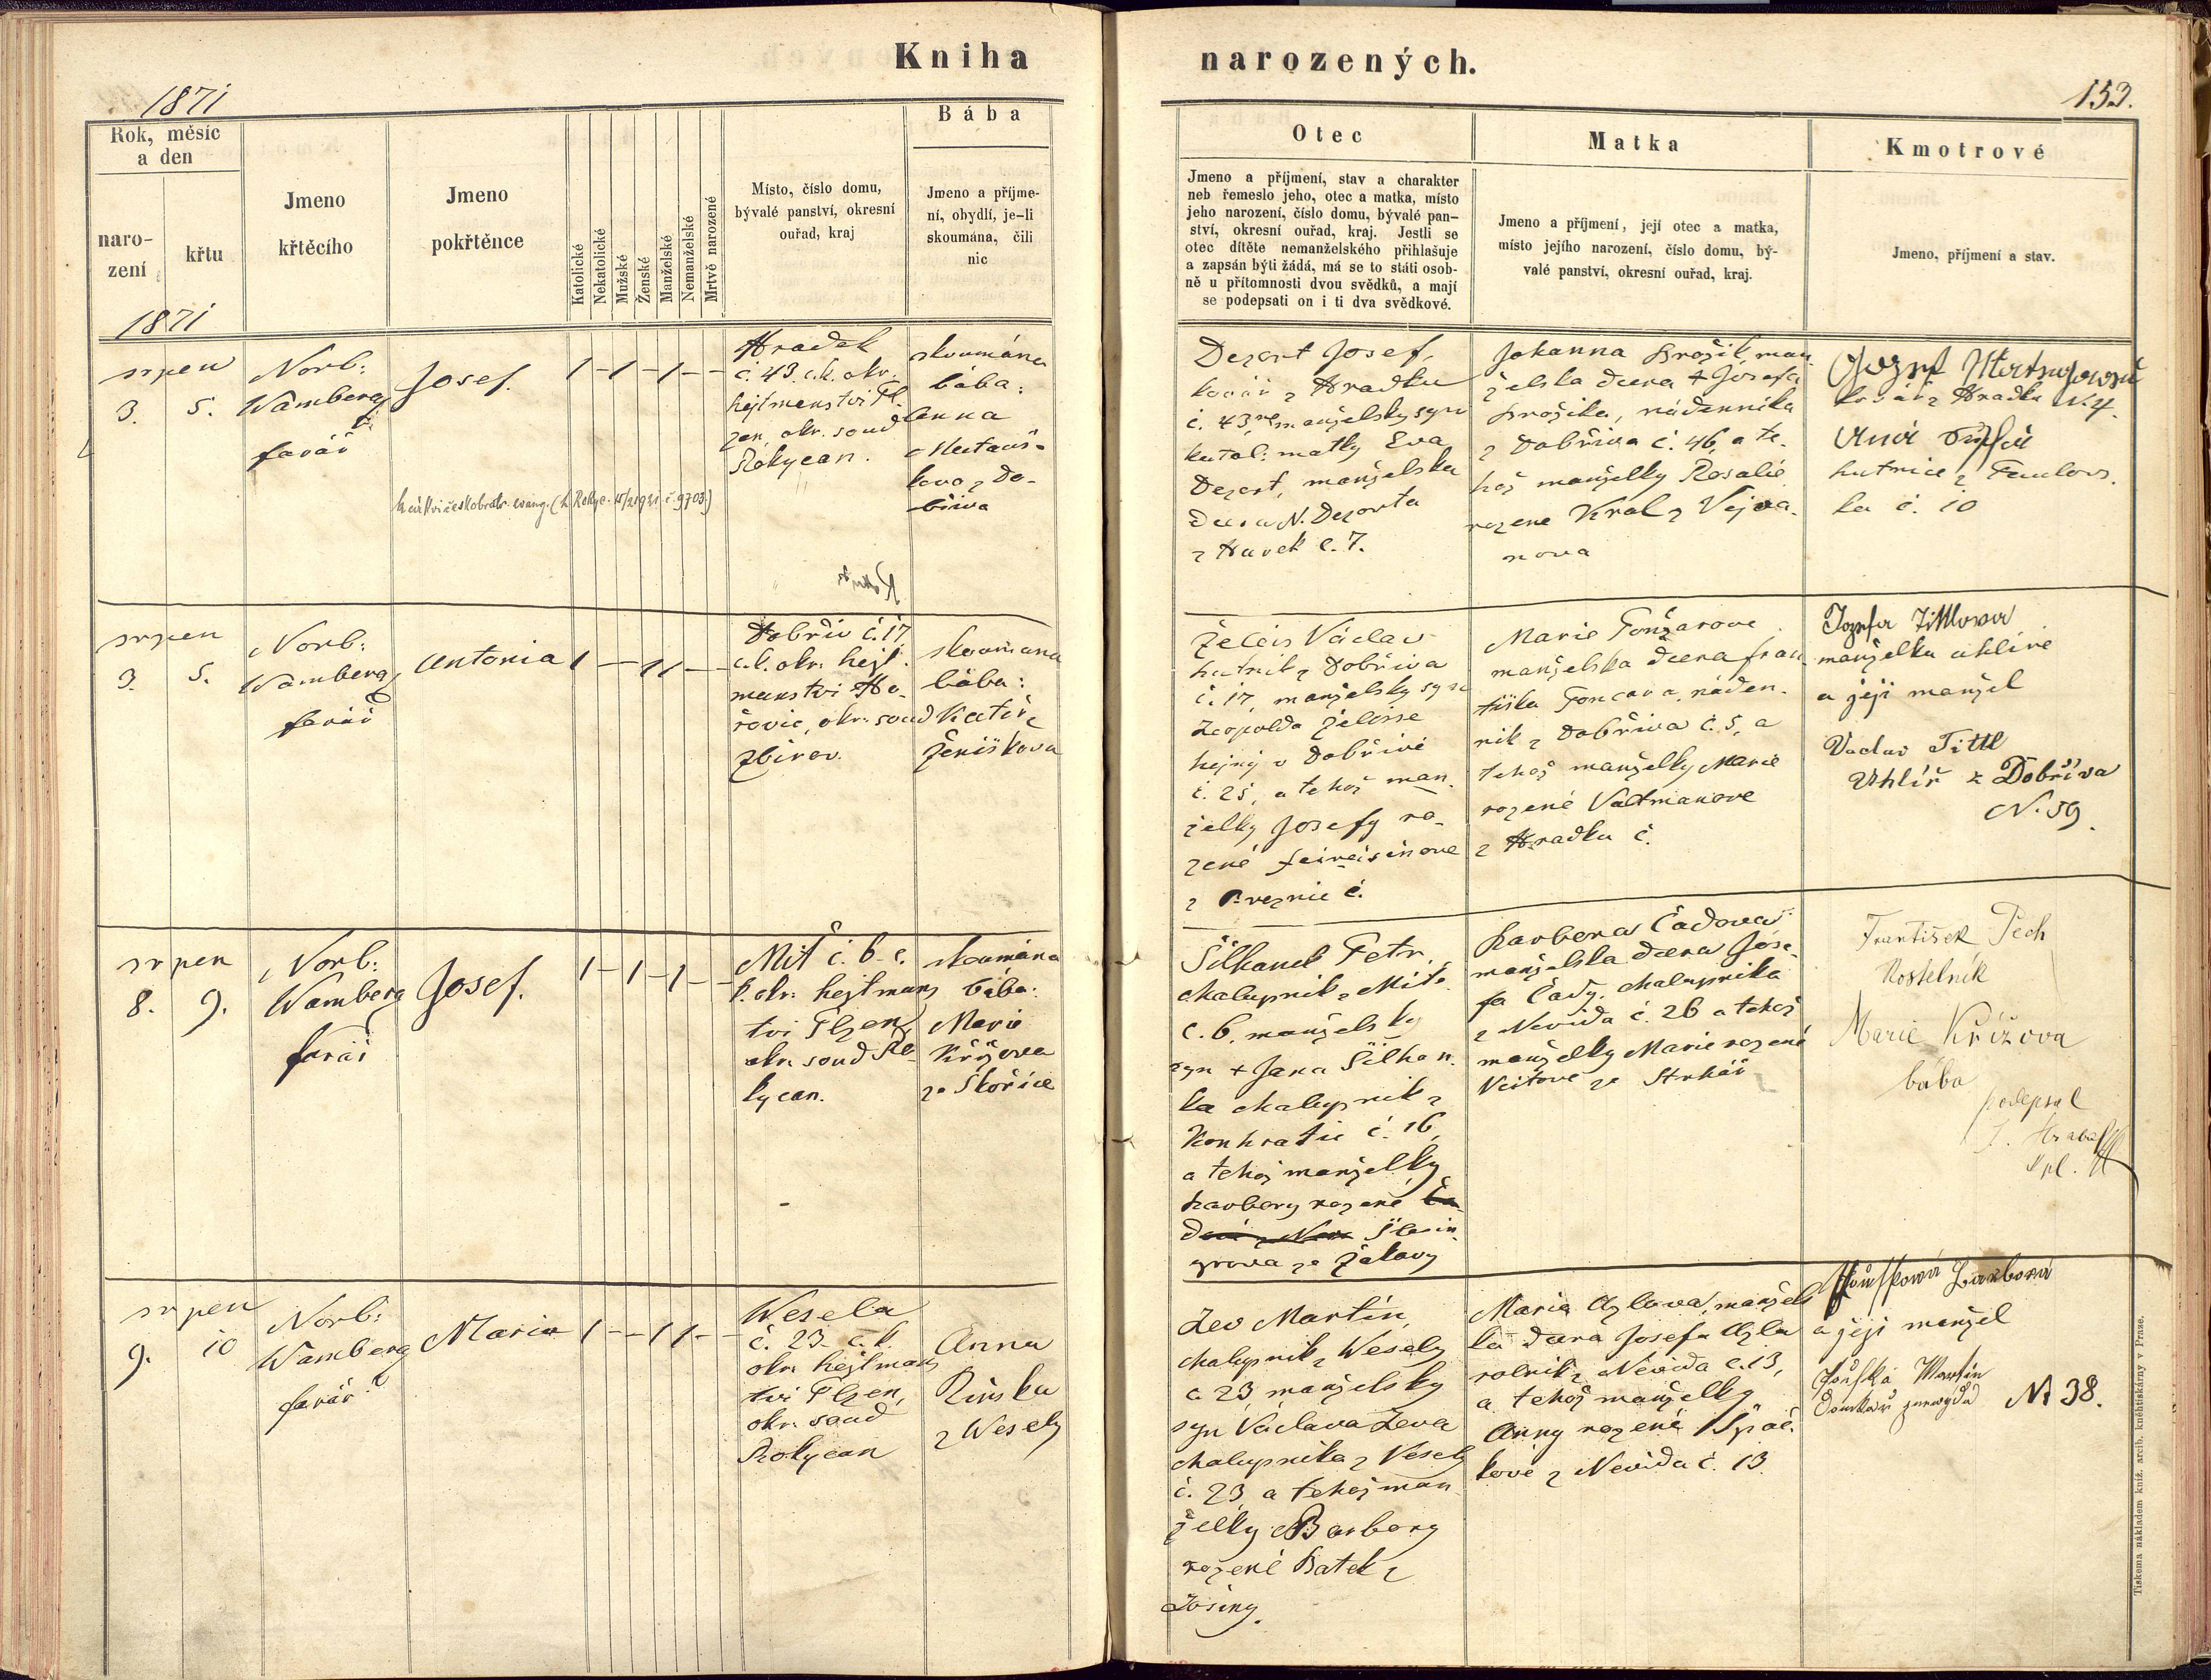 Kniha
narozených.
1871
153.
Rok, měsíc
a den
naro-
zení
křtu
Jmeno
křtěcího
Jmeno
pokřtěnce
Katolické
Nekatolické
Mužské
Ženské
Manželské
Nemanželské
Mrtvě narozené
Místo, číslo domu,
bývalé panství, okresní
ouřad, kraj
Bába
Jmeno a příjme-
ní, obydlí, je-li
skoumána, čili
nic
Otec
Jmeno a příjmení, stav a charakter
neb řemeslo jeho, otec a matka, místo
jeho narození, číslo domu, bývalé pan-
ství, okresní ouřad, kraj. Jestli se
otec dítěte nemanželského přihlašuje
a zapsán býti žádá, má se to státi osob-
ně u přítomnosti dvou svědků, a mají
se podepsati on i ti dva svědkové.
Matka
Jmeno a příjmení, její otec a matka,
místo jejího narození, číslo domu, bý-
valé panství, okresní ouřad, kraj.
Kmotrové
Jmeno, příjmení a stav.
1871
srpen
3. 5.
Norb:
Wamberg
farář
Josef.
1 - 1 - 1 - -
Hradek
č. 43. c.k. okr.
hejtmanstvi Pl-
zen, okr. soud
Rokycan.
skoumána
bába:
Anna
z Do-
břiva
Dezort Josef,
kovář z Hradku
č. 43, manželsky syn
katol: matky Eva
Dezort, manželska
dcera N. Dezorta
z Havek č. 7.
Johanna Brožik, man
želska dcera + Josefa
Brožika, nádenníka
z Dobřiva č. 46, a te-
hož manželky Rosalie
rozene Kral z Vejva-
nova
kovář z Hradku N. 4.
hutnice z Paulovs.
ka č. 10
srpen
3. 5.
Norb:
Wamberg
farář
Antonia
1 - 1 1 - -
Dobřiv č. 17
c.k. okr. hejt-
manstvi Ho-
řovic, okr. soud
Zbirov.
skoumana
bába:
Kateř.
Ženíškova
Želeis Václav
hutnik z Dobřiva
č. 17, manželsky syn
Leopolda Želisse
hejný v Dobřivě
č. 25, a tehož man-
želky Josefy ro-
zené Feireisinove
č.
Marie Tonžarove
manželska dcera Fran
tiška Toncara, náden-
nik z Dobřiva č. 5, a
tehož manželky Marie
rozené Valtmanove
z Hradku č.
Jozefa Tittlowa
manželka uhlíře
a její manžel
Vaclav Tittl
Uhlíř z Dobříva
N. 59.
srpen
8. 9.
Norb:
Wamberg
farář
Josef.
1 - 1 - 1 - -
Mit č. 6 c.
k. okr. hejtmans
tvi Plzen,
okr. soud Ro-
kycan.
skoumána
bába:
Marie
Křížova
ze Skořice
Šilhanek Petr,
chalupnik z Mitě
č. 6, manželsky
syn + Jana Šilhan-
ka chalupnik z
Konhratic č. 16,
a tehož manželky
Barbory rozené
grova ze Žakavy
Barbora Čadova
manželska dcera Jose-
fa Čady, chalupnika
z Nevida č. 26 a tehož
manželky Marie rozené
Veitove ze Strhář
František Pech
Kostelník
Marie Křížova
bába
podepsal
srpen
9. 10
Norb:
Wamberg
farář
Maria
1 - - 1 1 - -
Wesela
č. 23 c.k.
okr. hejtmans
tvi Plzen,
okr. soud
Rokycan
Anna
z Wesely
Lev Martin,
chalupnik z Wesely
č 23 manželsky
syn Václava Leva
chalupnika z Vesely
č. 23 a tehož man-
želky Barbory
rozené Batek z
Maria Azlova, manžels
ka dcera Josefa Azla
rolnik z Nevida č. 13,
a tehož manželky
Anny rozené Špač-
kové z Nevida č. 13.
Barbora
a její manžel
Martin
N 38.
Tiskema nákladem kniž. arcib. knihtiskárny v Praze.